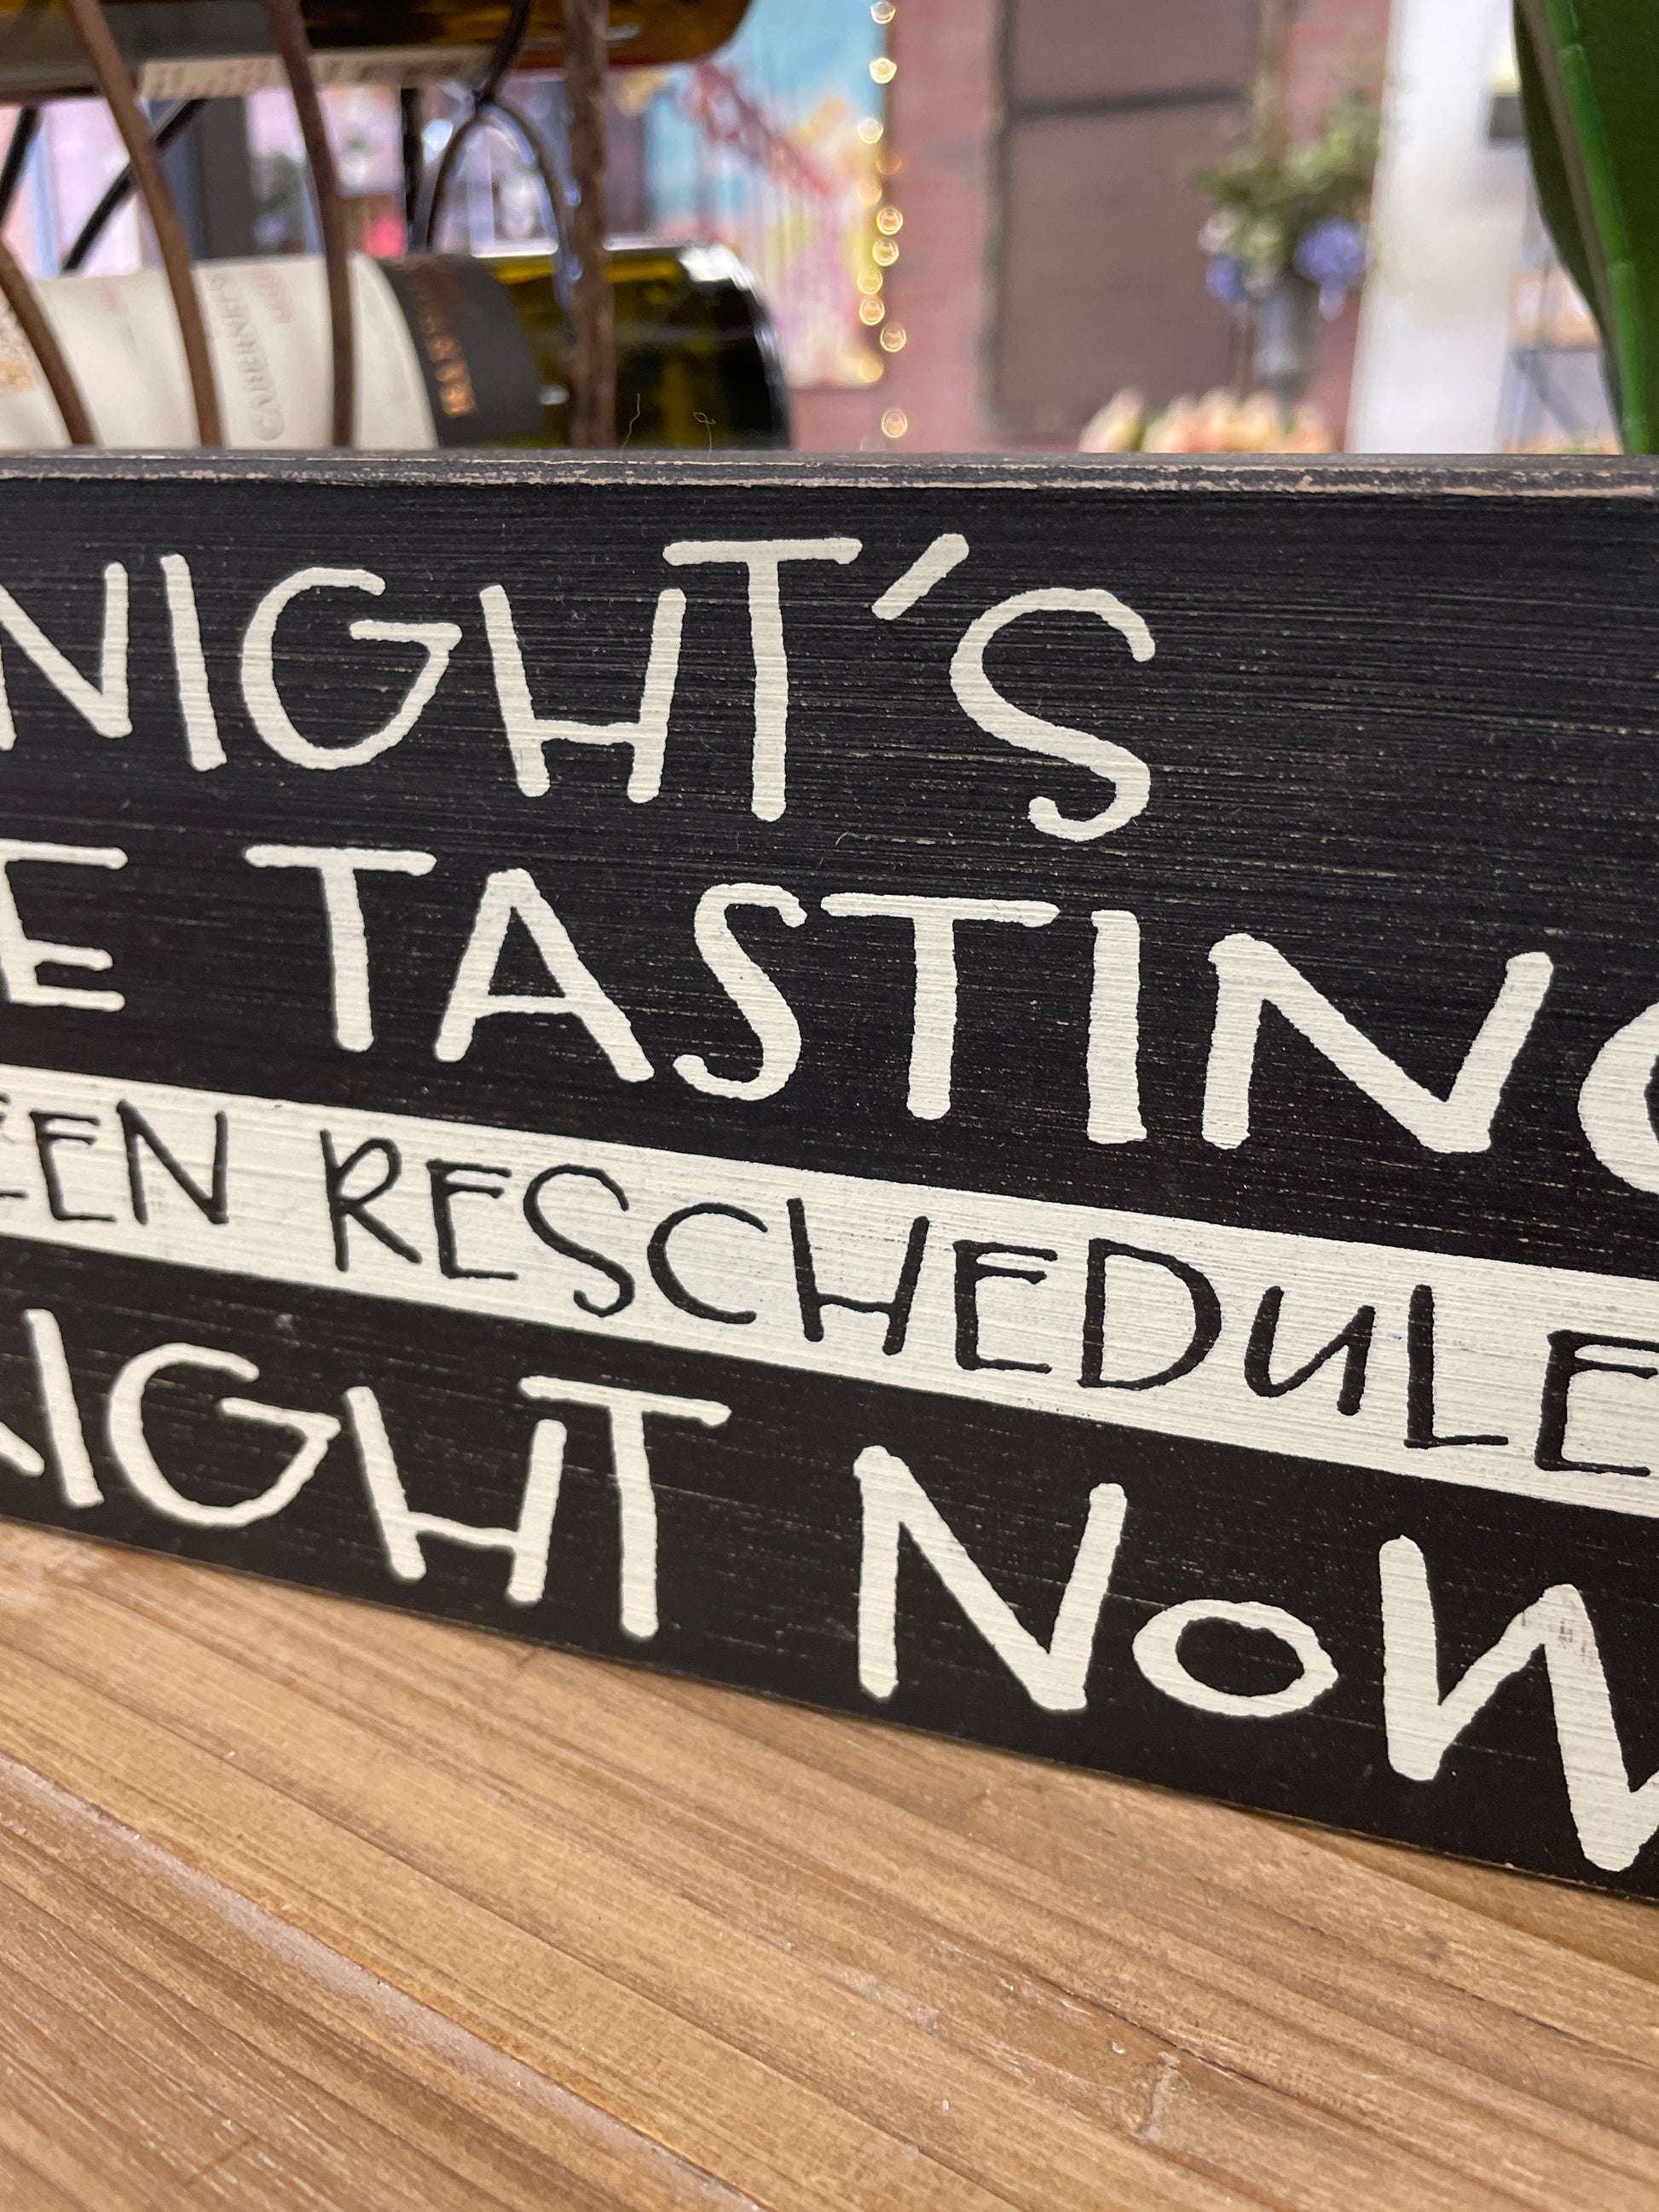 CABERNET
NIGHT'S
E TASTING
EEN RESCHEDULE
IGHT NOW